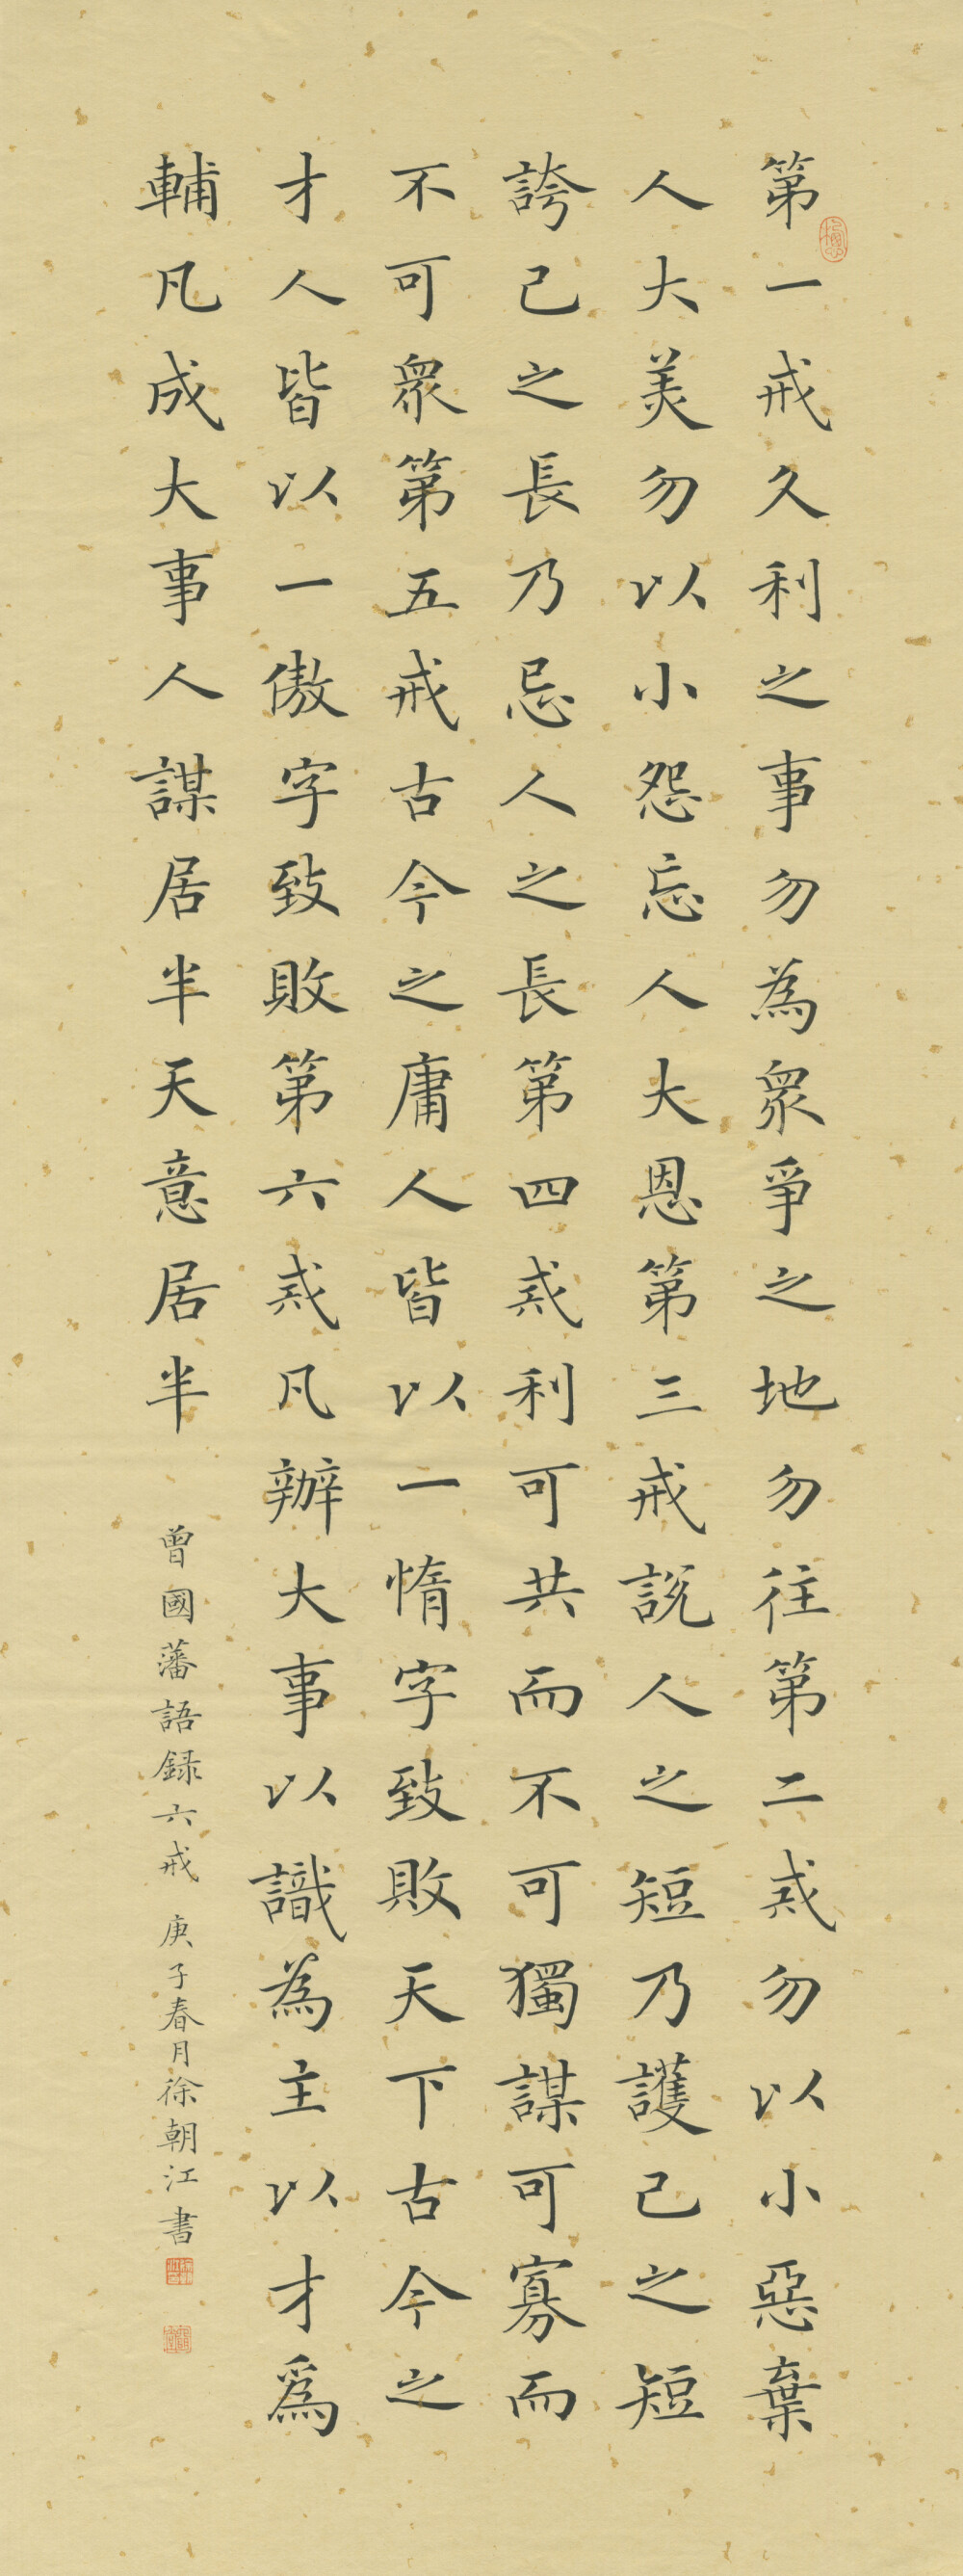 第一戒久利之事勿為衆爭之地勿往第二戒勿以小惡棄
人大美勿以小怨忘人大恩第三戒説人之短乃護己之短
誇己之長乃忌人之長第四戒利可共而不可獨謀可寡而
不可衆第五戒古今之庸人皆以一惰字致敗天下古今之
才人皆以一傲字致敗第六戒凡辦大事以識為主以才爲
輔凡成大事人謀居半天意居半
曾國藩語録六戒 庚子春月徐朝江書